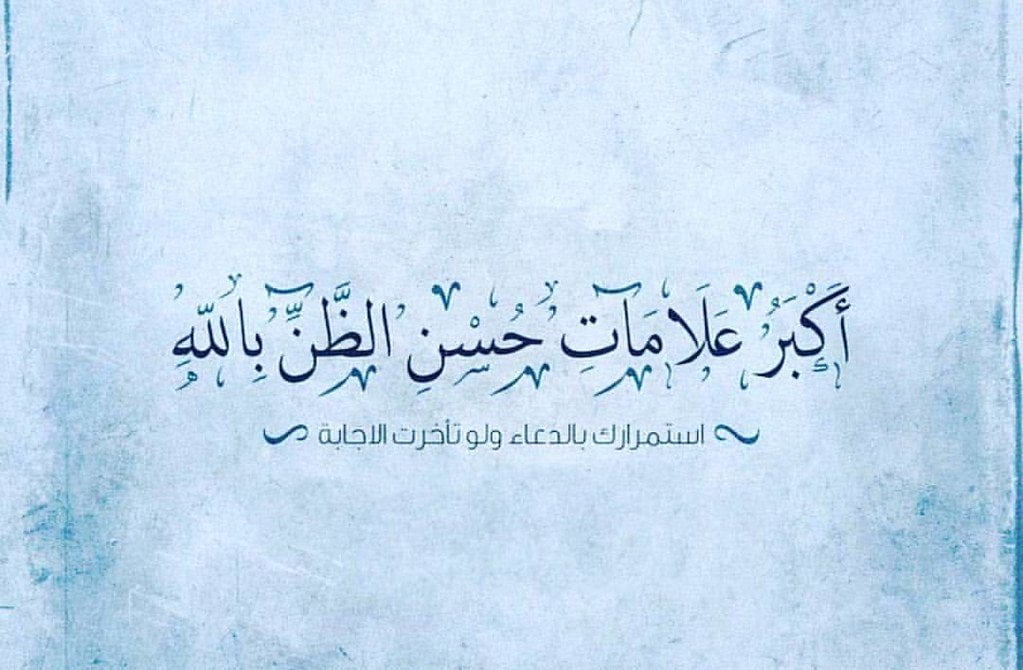 أَكْبَرُ عَلَامَاتِ حُسْنِ الظَّنِّ بِاللَّهِ
استمرارك بالدعاء ولو تأخرت الاجابة